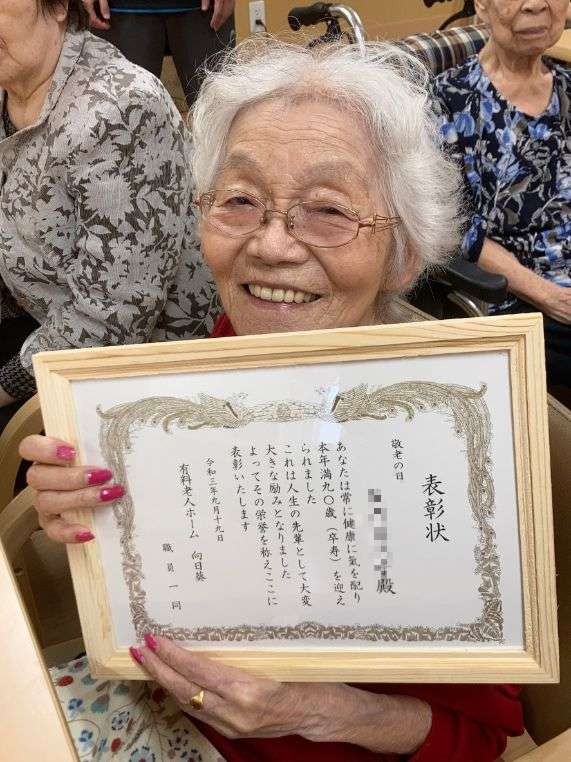 表彰状
敬老の日
殿
あなたは常に健康に氣を配り
本年満九〇歳（卒寿）を迎え
られました
これは人生の先輩として大変
大きな励みとなりました
よってその栄誉を称えここに
表彰いたします
令和三年九月十九日
有料老人ホーム　向日葵
職員一同